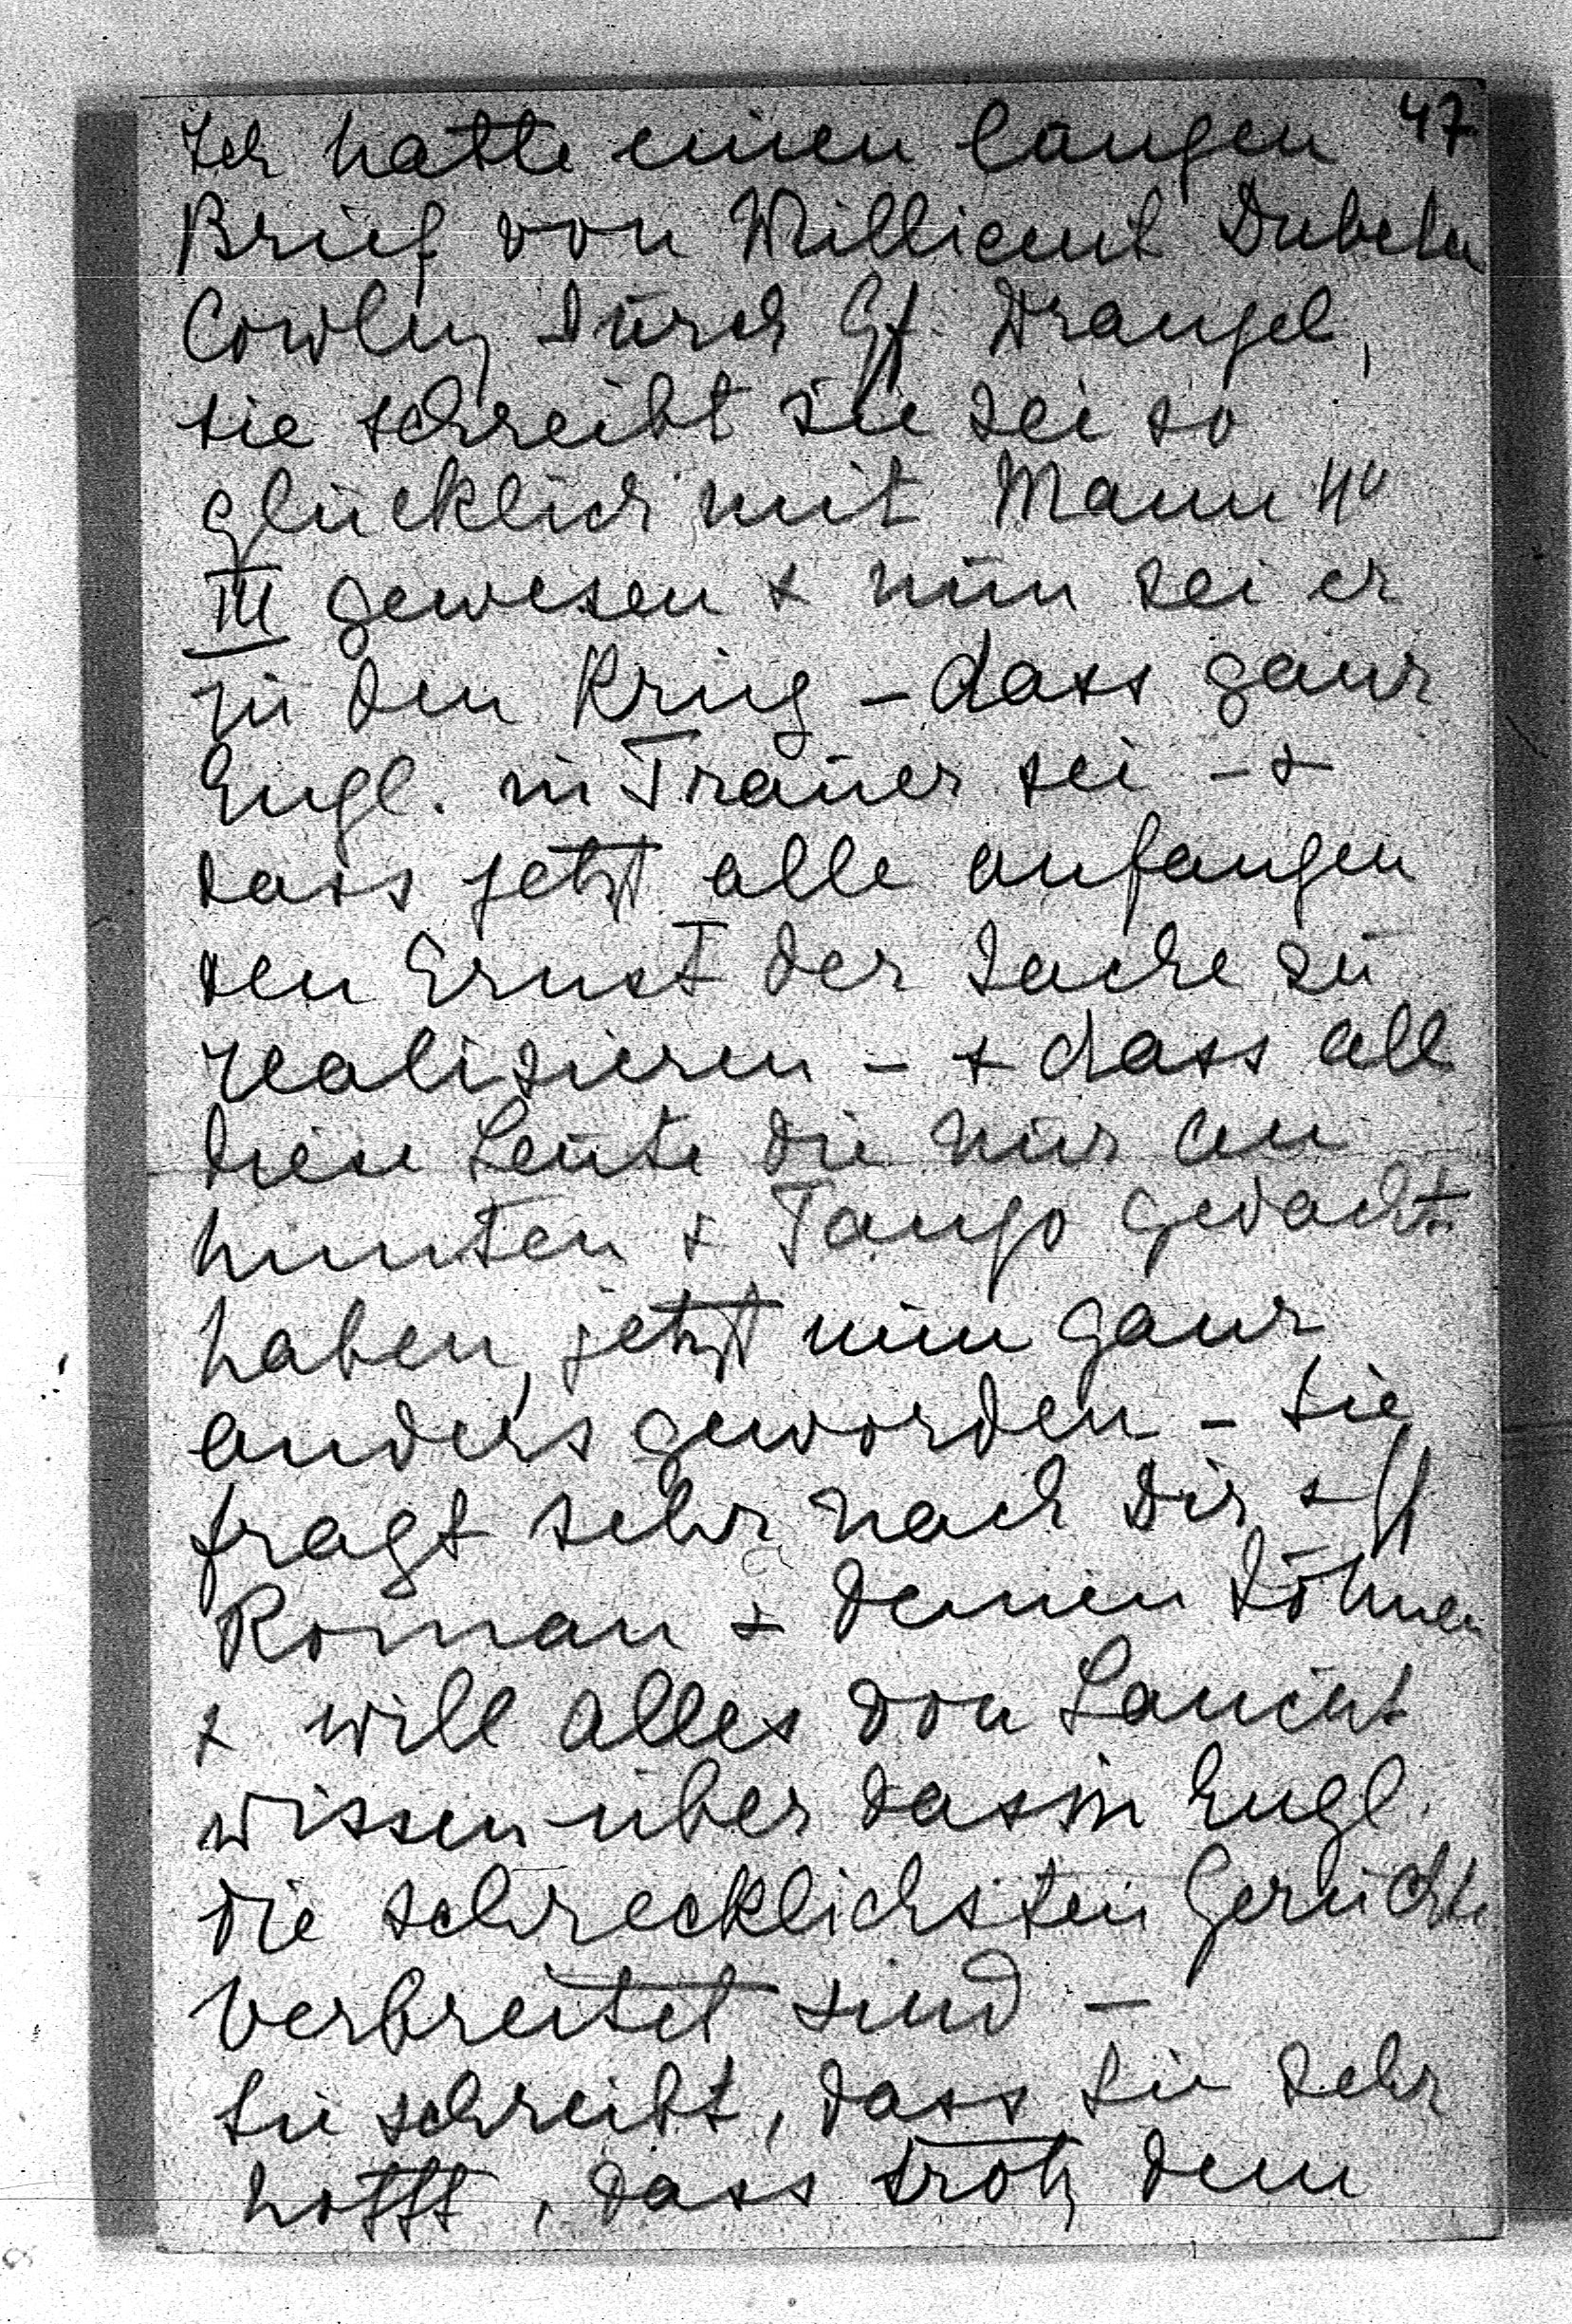 47
Ich hatte einen langen
Brief von Millicent
Cowley durch Gf. Wrangel,
sie schreibt sie sei so
glücklich mit Mann No
III gewesen & nun sei er
in den Krieg – dass ganz
Engl. in Trauer sei – &
dass jetzt alle anfangen
den Ernst der Sache zu
realisieren – & dass all
diese Leute die nur an
hunten & Tango gedacht
haben, jetzt nun ganz
anders geworden – Sie
fragt sehr nach Dir &
Roman & Deinen Söhnen
& will alles von Lancut
wissen über das in Engl.
die schrecklichsten Gerüchte
verbreitet sind –
Sie schreibt, dass sie sehr
hofft, dass trotz dem